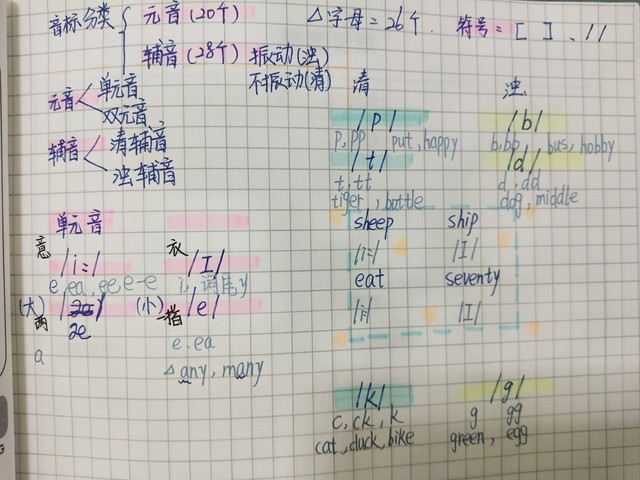 音标分类 { 元音 (20个) △字母=26个. 符号=[ ]、//
辅音 (28个) 振动(浊)
不振动(清)
元音 < 单元音
双元音
辅音 < 清辅音
浊辅音
清 浊
/p/ /b/
p, pp put, happy b, bb bus, hobby
/t/ /d/
t, tt d, dd
tiger, bottle dog, middle
sheep ship
/i:/ /I/
eat seventy
/i:/ /I/
单元音
意 /i:/ /I/
e, ea, ee, e-e i, 词尾y
(大) 两 /æ/ (小) 一指 /e/
a e. ea
△any, many
/k/ /g/
c, ck, k g gg
cat, duck, bike green, egg